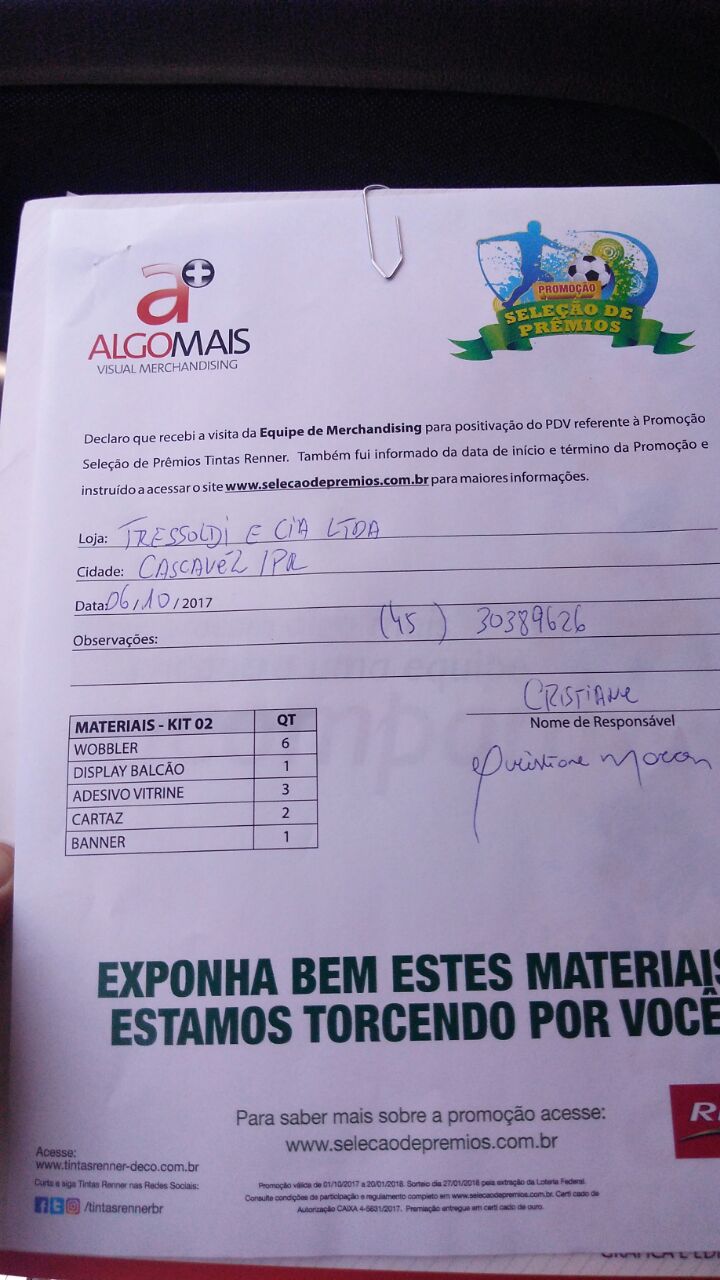 a+
ALGOMAIS
VISUAL MERCHANDISING
PROMOÇÃO
SELEÇÃO DE
PRÊMIOS
Declaro que recebi a visita da Equipe de Merchandising para positivação do PDV referente à Promoção
Seleção de Prêmios Tintas Renner. Também fui informado da data de início e término da Promoção e
instruído a acessar o site www.selecaodepremios.com.br para maiores informações.
Loja: TRESSOLDI E CIA LTDA
Cidade: CASCAVEL / PR
Data: 06/10/2017
Observações: (45) 30389626
CRISTIANE
Nome de Responsável
MATERIAIS - KIT 02 QT
WOBBLER 6
DISPLAY BALCÃO 1
ADESIVO VITRINE 3
CARTAZ 2
BANNER 1
EXPONHA BEM ESTES MATERIAIS
ESTAMOS TORCENDO POR VOCÊ
Para saber mais sobre a promoção acesse:
www.selecaodepremios.com.br
Acesse:
www.tintasrenner-deco.com.br
Curta e siga Tintas Renner nas Redes Sociais:
/tintasrennerbr
Promoção válida de 01/10/2017 a 20/01/2018. Sorteio dia 27/01/2018 pela extração da Loteria Federal.
Consulte condições de participação e regulamento completo em www.selecaodepremios.com.br. Certi cado de
Autorização CAIXA 4-5631/2017. Premiação entregue em certi cado de ouro.